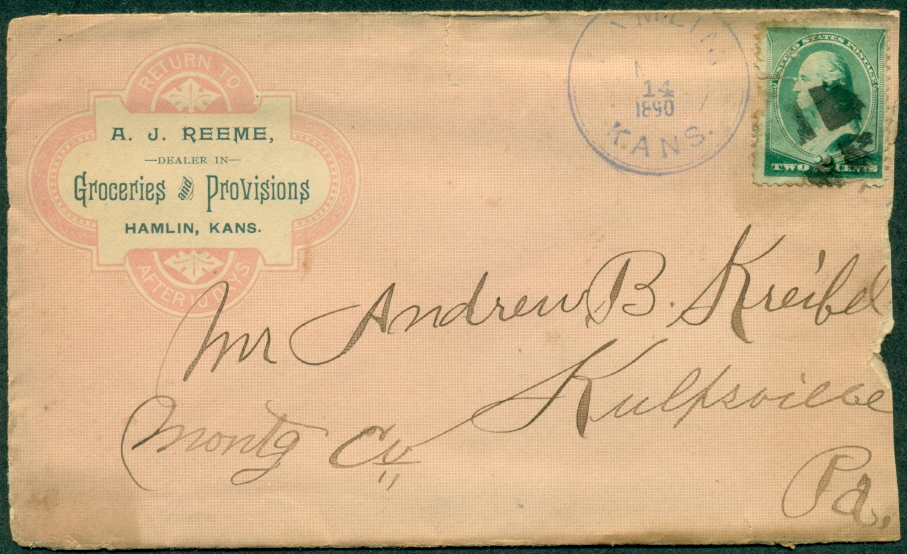 RETURN TO
A. J. REEME,
—DEALER IN—
Groceries and Provisions
HAMLIN, KANS.
AFTER 10 DAYS
14
1890
KANS.
UNITED STATES POSTAGE
TWO CENTS
Mr Andrew B. Kreibel
Kulpsville
Montg Co
Pa.